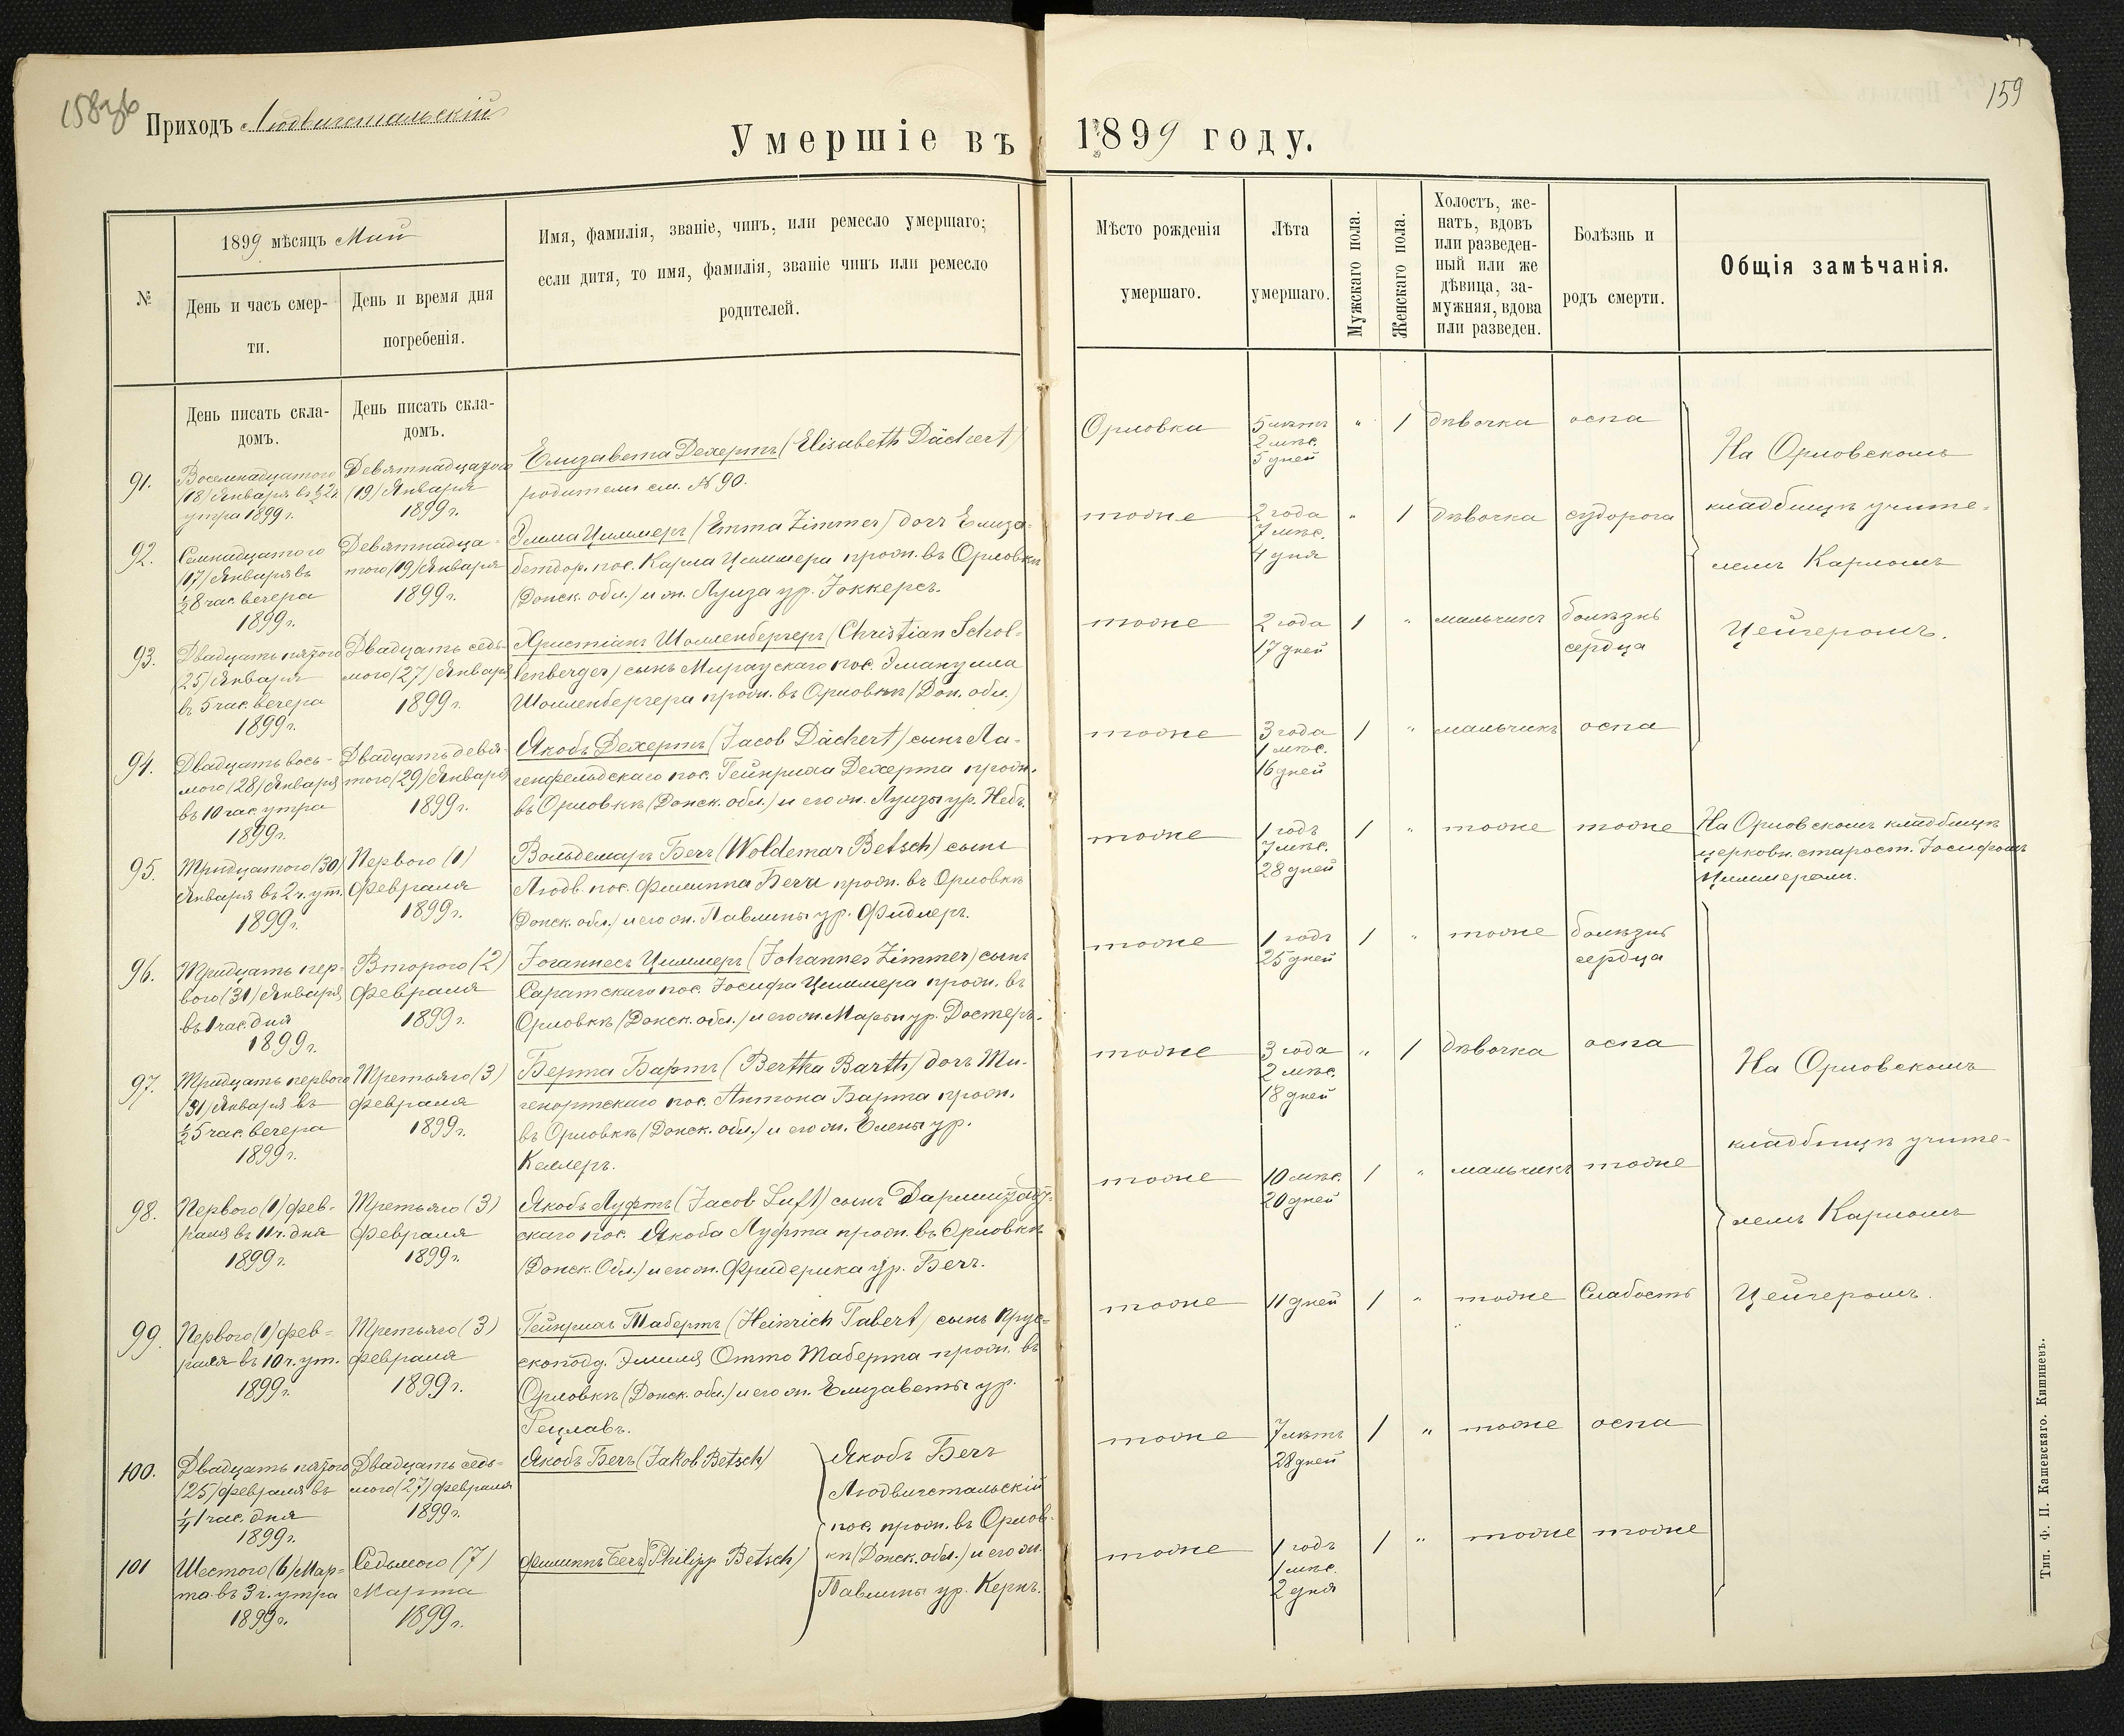 158об
Приходъ Людвигстальскій
Умершіе въ 1899 году.
159
№
1899 мѣсяцъ Май
День и часъ смер-
ти.
День и время дня
погребенія.
Имя, фамилія, званіе, чинъ, или ремесло умершаго;
если дитя, то имя, фамилія, званіе чинъ или ремесло
родителей.
Мѣсто рожденія
умершаго.
Лѣта
умершаго.
Мужскаго пола.
Женскаго пола.
Холостъ, же-
натъ, вдовъ
или разведен-
ный или же
дѣвица, за-
мужняя, вдова
или разведен.
Болѣзнь и
родъ смерти.
Общія замѣчанія.
День писать скла-
домъ.
День писать скла-
домъ.
91.
Восемнадцатого
(18) Января въ ½2 ч.
утра 1899 г.
Девятнадцатого
(19) Января
1899 г.
Елизавета Дехертъ (Elisabeth Dächert)
родители см. № 90.
Орловка
5 лѣтъ
2 мѣс.
5 дней
" 1 дѣвочка оспа
92.
Семнадцатого
(17) Января въ
½8 час. вечера
1899 г.
Девятнадца-
того (19) Января
1899 г.
Эмма Циммеръ (Emma Zimmer) дочь Елиза-
бетдор. пос. Карла Циммера прож. въ Орловкѣ
(Донск. обл.) и ж. Луиза ур. Іоккерсъ.
тоже
2 года
7 мѣс.
4 дня
" 1 дѣвочка судорога
93.
Двадцать пятого
(25) Января
въ 5 час. вечера
1899 г.
Двадцать седь-
мого (27) Января
1899 г.
Христіанъ Шолленбергеръ (Christian Schol-
lenberger) сынъ Мирауского пос. Эмануила
Шолленбергера прож. въ Орловкѣ (Дон. обл.)
тоже
2 года
17 дней
1 " мальчикъ болѣзнь
сердца
94.
Двадцать вось-
мого (28) Января
въ 10 час. утра
1899 г.
Двадцать девя-
того (29) Января
1899 г.
Якобъ Дехертъ (Jacob Dächert) сынъ Ла-
генфельдскаго пос. Гейнриха Дехерта прож.
въ Орловкѣ (Донск. обл.) и его ж. Луизы ур. Небъ.
тоже
3 года
1 мѣс.
16 дней
1 " мальчикъ оспа
На Орловскомъ
кладбищѣ учите-
лемъ Карломъ
Цейгеромъ.
95.
Тридцатого (30)
Января въ 2 ч. ут.
1899 г.
Перваго (1)
Февраля
1899 г.
Вольдемаръ Бечъ (Woldemar Betsch) сынъ
Людв. пос. Филиппа Беча прож. въ Орловкѣ
(Донск. обл.) и его ж. Павлины ур. Фидлеръ.
тоже
1 годъ
7 мѣс.
28 дней
1 " тоже тоже
На Орловскомъ кладбищѣ
церковн. старост. Іосифомъ
Циммеромъ.
96.
Тридцать пер-
вого (31) Января
въ 1 час. дня
1899 г.
Второго (2)
Февраля
1899 г.
Іоганнесъ Циммеръ (Johannes Zimmer) сынъ
Саратскаго пос. Іосифа Циммера прож. въ
Орловкѣ (Донск. обл.) и его ж. Маріи ур. Достеръ.
тоже
1 годъ
25 дней
1 " тоже болѣзнь
сердца
97.
Тридцать первого
(31) Января въ
½5 час. вечера
1899 г.
Третьяго (3)
Февраля
1899 г.
Берта Бартъ (Bertha Barth) дочь Ти-
генортскаго пос. Антона Барта прож.
въ Орловкѣ (Донск. обл.) и его ж. Елены ур.
Келлеръ.
тоже
3 года
2 мѣс.
18 дней
" 1 дѣвочка оспа
98.
Перваго (1) Фев-
раля въ 11 ч. дня
1899 г.
Третьяго (3)
Февраля
1899 г.
Якобъ Луфтъ (Jacob Luft) сынъ Дармштадт-
скаго пос. Якоба Луфта прож. въ Орловкѣ
(Донск. Обл.) и его ж. Фридерика ур. Бечъ.
тоже
10 мѣс.
20 дней
1 " мальчикъ тоже
99.
Перваго (1) Фев-
раля въ 10 ч. ут.
1899 г.
Третьяго (3)
Февраля
1899 г.
Гейнрихъ Табертъ (Heinrich Tabert) сынъ Прус-
скопод. Эмиля Отто Таберта прож. въ
Орловкѣ (Донск. обл.) и его ж. Елизаветы ур.
Гецлавъ.
тоже
11 дней
1 " тоже Слабость
100.
Двадцать пятого
(25) Февраля въ
¼1 час. дня
1899 г.
Двадцать седь-
мого (27) Февраля
1899 г.
Якобъ Бечъ (Jakob Betsch)
тоже
7 лѣтъ
28 дней
1 " тоже оспа
101
Шестого (6) Мар-
та въ 3 ч. утра
1899 г.
Седьмого (7)
Марта
1899 г.
Филиппъ Бечъ (Philipp Betsch)
Якобъ Бечъ
Людвигстальскій
пос. прож. въ Орлов-
кѣ (Донск. обл.) и его ж.
Павлины ур. Кернъ.
тоже
1 годъ
1 мѣс.
2 дня
1 " тоже тоже
На Орловскомъ
кладбищѣ учите-
лемъ Карломъ
Цейгеромъ.
Тип. Ф. П. Кашевскаго. Кишиневъ.